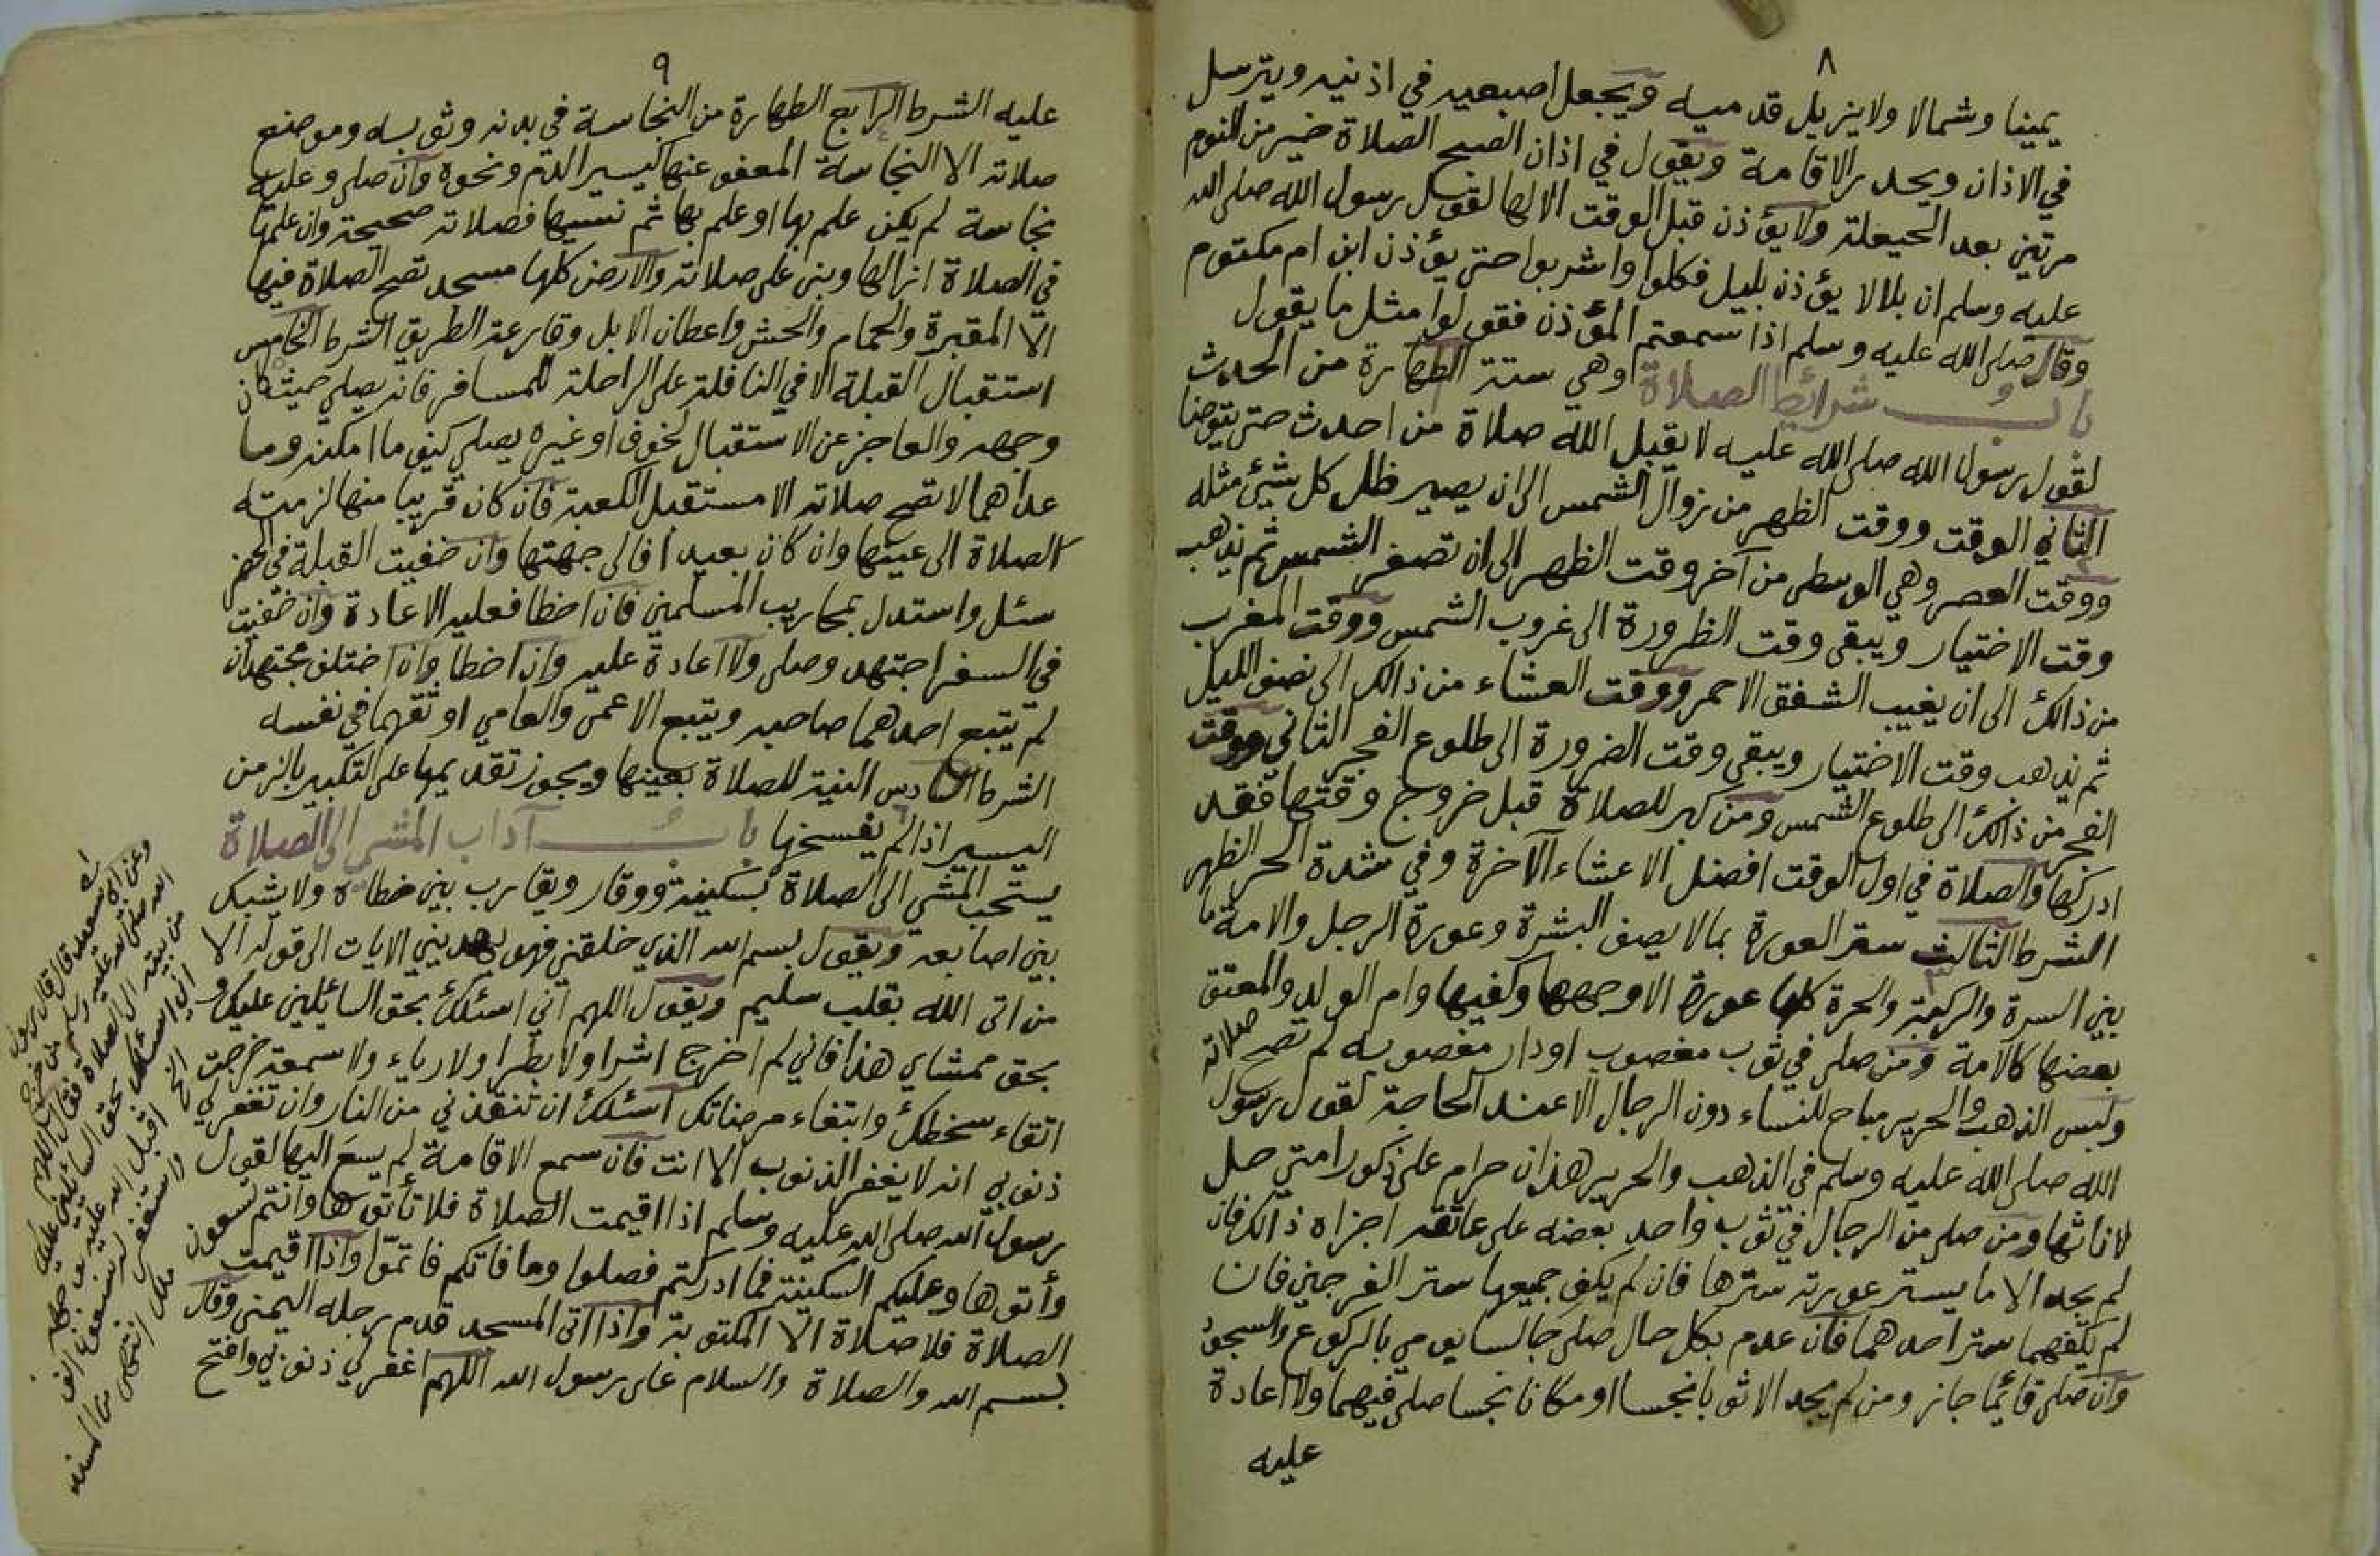 ٨
يمينا وشمالا ولا يزيل قدميه ويجعل اصبعيه في اذنيه ويترسل
في الاذان ويحدر الاقامة ويقول في اذان الصبح الصلاة خير من النوم
مرتين بعد الحيعلة ولا يؤذن قبل الوقت الا لها لقول رسول الله صلى الله
عليه وسلم ان بلالا يؤذن بليل فكلوا واشربوا حتى يؤذن ابن ام مكتوم
وقال صلى الله عليه وسلم اذا سمعتم المؤذن فقولوا مثل ما يقول
باب شرائط الصلاة وهي ستة الطهارة من الحدث
لقول رسول الله صلى الله عليه لا يقبل الله صلاة من احدث حتى يتوضا
الثاني الوقت ووقت الظهر من زوال الشمس الى ان يصير ظل كل شيئ مثله
ووقت العصر وهي الوسطى من آخر وقت الظهر الى ان تصفر الشمس ثم يذهب
وقت الاختيار ويبقى وقت الظرورة الى غروب الشمس ووقت المغرب
من ذالك الى ان يغيب الشفق الاحمر ووقت العشاء من ذالك الى نصف الليل
ثم يذهب وقت الاختيار ويبقى وقت الضرورة الى طلوع الفجر الثاني ووقت
الفجر من ذالك الى طلوع الشمس ومن كبر للصلاة قبل خروج وقتها فقد
ادركها والصلاة في اول الوقت افضل الا عشاء الآخرة وفي شدة الحر الظهر
الشرط الثالث ستر العورة بما لا يصف البشرة وعورة الرجل والامة ما
٣
بين السرة والركبة والحرة كلها عورة الا وجهها وكفيها وام الولد والمعتق
بعضها كالامة ومن صلى في ثوب مغصوب او دار مغصوبه لم تصح صلاته
ولبس الذهب والحرير مباح للنساء دون الرجال الا عند الحاجة لقول رسول
الله صلى الله عليه وسلم في الذهب والحرير هذان حرام على ذكور امتي حل
لاناثها ومن صلى من الرجال في ثوب واحد بعضه على عاتقه اجزاه ذالك فان
لم يجد الا ما يستر عورته سترها فان لم يكف جميعها ستر الفرجين فان
لم يكفهما ستر احدهما فان عدم بكل حال صلى جالسا يومي بالركوع والسجود
وان صلى قائما جاز ومن لم يجد الا ثوبا نجسا او مكانا نجسا صلى فيهما ولا اعادة
عليه
٩
عليه الشرط الرابع الطهارة من النجاسة في بدنه وثوبه وموضع
صلاته الا النجاسة المعفو عنها كيسير الدم ونحوه وان صلى وعليه
نجاسة لم يكن علم بها او علم بها ثم نسيها فصلاته صحيحة وان علمها
في الصلاة ازالها وبنى على صلاته والارض كلها مسجد تصح الصلاة فيها
الا المقبرة والحمام والحش واعطان الابل وقارعة الطريق الشرط الخامس
استقبال القبلة الا في النافلة على الراحلة للمسافر فانه يصلي حيث كان
وجهه والعاجز عن الاستقبال لخوف او غيره يصلي كيف ما امكنه وما
عداهما لا تصح صلاته الا مستقبل الكعبة فان كان قريبا منها لزمته
الصلاة الى عينها وان كان بعيدا فالى جهتها وان خفيت القبلة في الحضر
سئل واستدل بمحاريب المسلمين فان اخطا فعليه الاعادة وان خفيت
في السفر اجتهد وصلى ولا اعادة عليه وان اخطا وان اختلف مجتهدان
لم يتبع احدهما صاحبه ويتبع الاعمى والعامي اوثقهما في نفسه
الشرط السادس النية للصلاة بعينها ويجوز تقديمها على التكبير بالزمن
اليسير اذا لم يفسخها باب آداب المشي الى الصلاة
يستحب المشي الى الصلاة بسكينة ووقار ويقارب بين خطاه ولا يشبك
بين اصابعه ويقول بسم الله الذي خلقني فهو يهديني الايات الى قوله الا
من اتى الله بقلب سليم ويقول اللهم اني اسئلك بحق السائلين عليك و
بحق ممشاي هذا فاني لم اخرج اشرا ولا بطرا ولا رياء ولا سمعة خرجت
اتقاء سخطك وابتغاء مرضاتك اسئلك ان تنقذني من النار وان تغفر لي
ذنوبي انه لا يغفر الذنوب الا انت فان سمع الاقامة لم يسع اليها لقول
رسول الله صلى الله عليه وسلم اذا اقيمت الصلاة فلا تأتوها وانتم تسعون
وأتوها وعليكم السكينة فما ادركتم فصلوا وما فاتكم فاتموا واذا اقيمت
الصلاة فلا صلاة الا المكتوبة واذا اتى المسجد قدم رجله اليمنى وقال
بسم الله والصلاة والسلام على رسول الله اللهم اغفر لي ذنوبي وافتح
وعن ابي سعيد قال قال رسول الله
الله صلى الله عليه وسلم من خرج
من بيته الى الصلاة فقال اللهم
اني اسئلك بحق السائلين عليك
الخ اقبل الله عليه بوجهه
واستغفر له سبعون الف
ملك انتهى من المسند